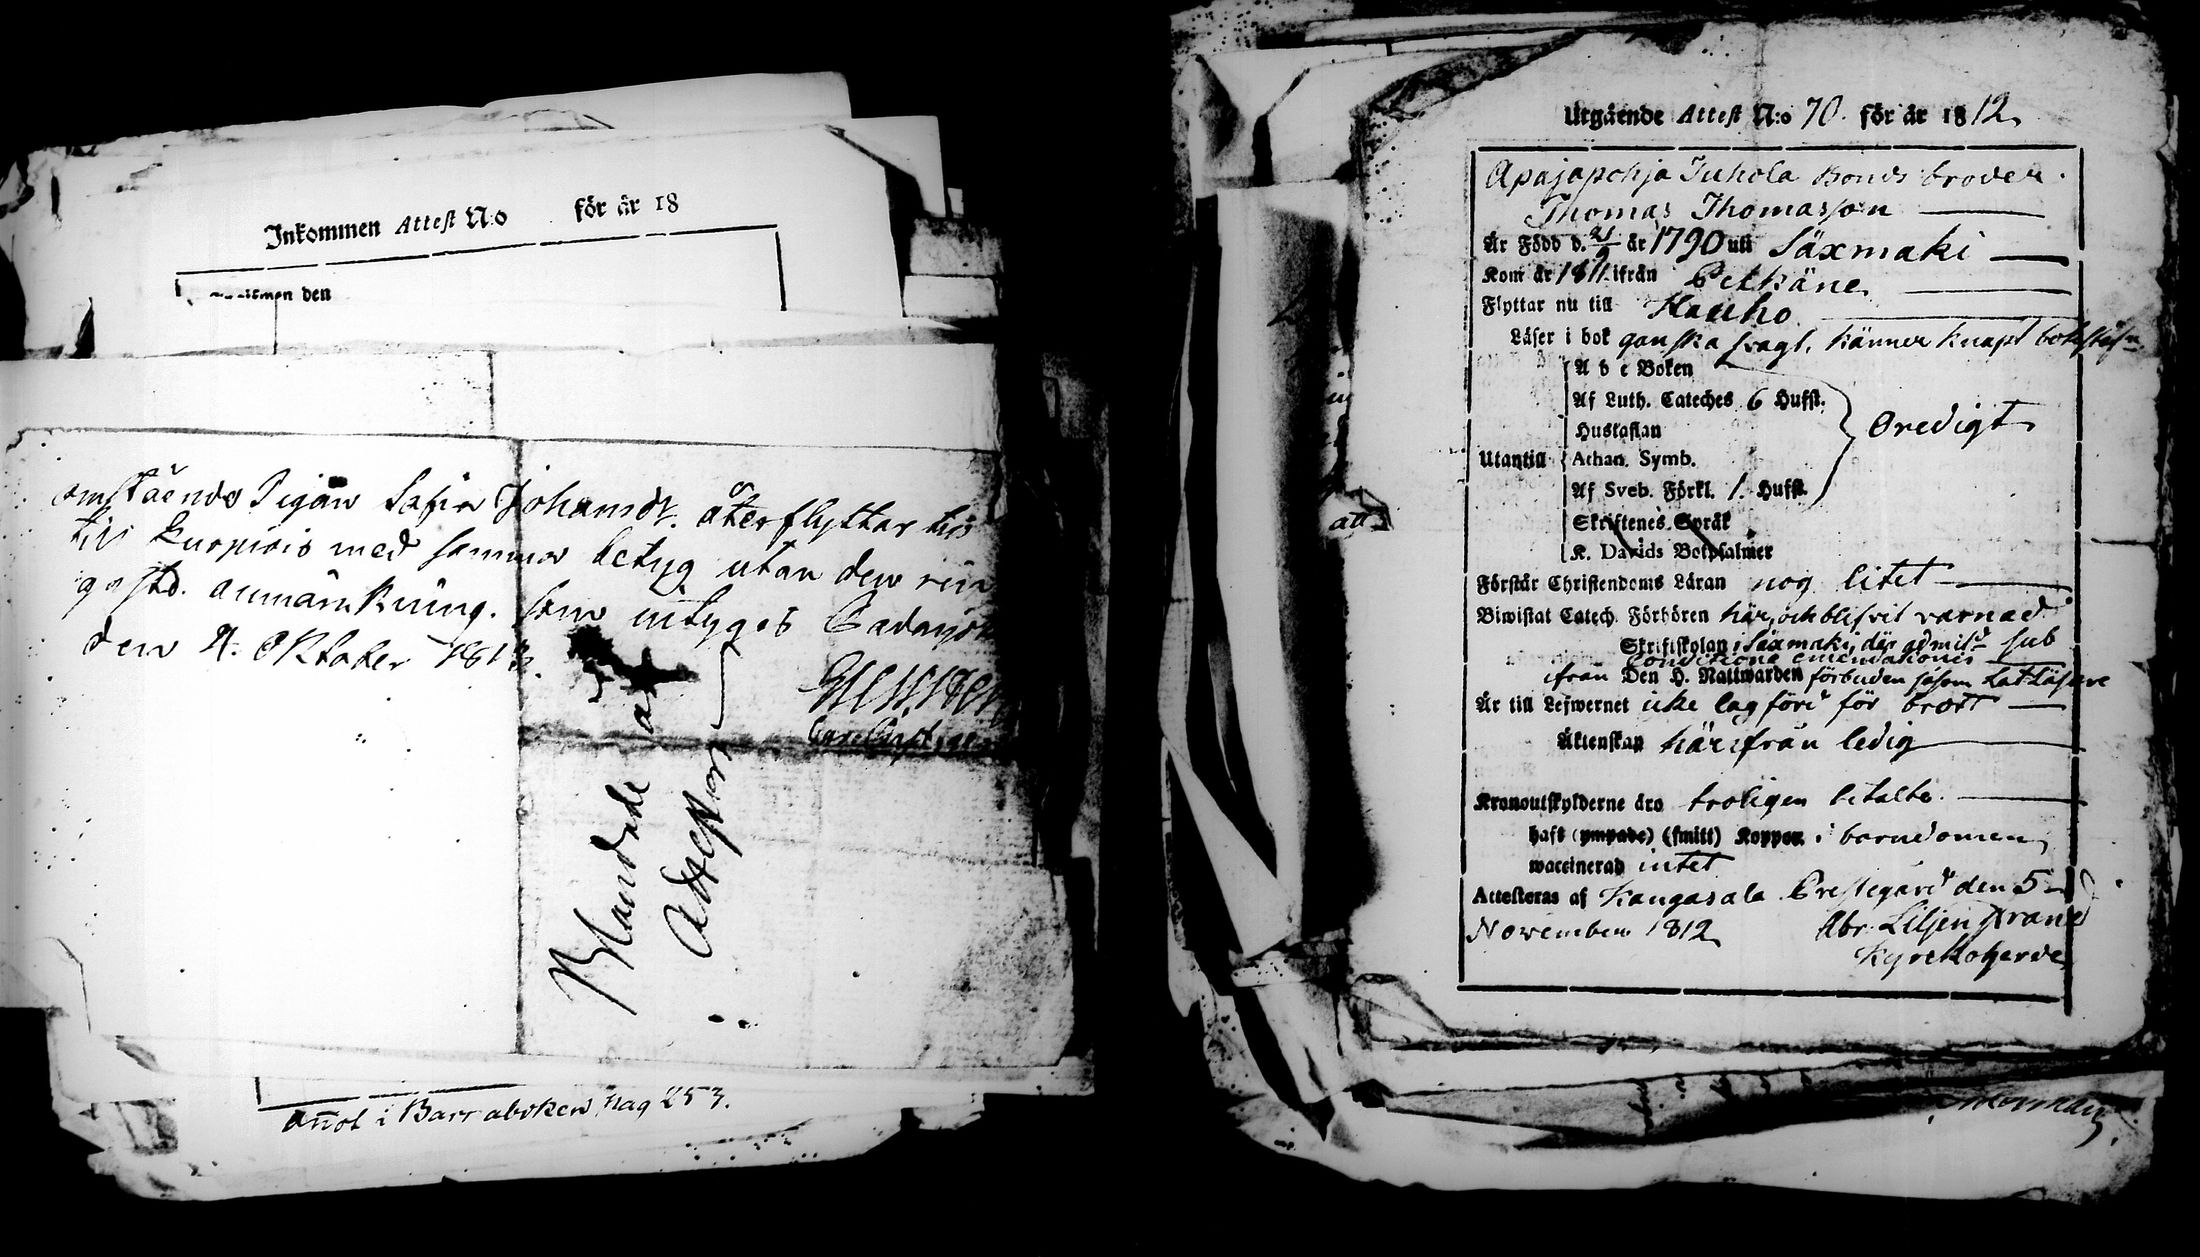 Inkommen Attest N:o för år 18
den
omstående Pigan Johansdr. återflyttar
till med samma betyg utan den
anmärkning. som intyges
den 4. Oktober 1813.
annot i Barnaboken pag 253.
Utgående Attest N:o 70. för år 1812.
Apajapohja Juhola Bonds broder
Thomas Thomasson
Är Född d. 21/9 år 1790 uti Säxmäki
Kom år 1811 ifrån Pelkäne
Flyttar nu till Hauho
Läser i bok ganska svagt, känner knapt
A b c Boken
Af Luth. Cateches 6 Hufst.
Hustaflan
Oredigt
Utantill Athan. Symb.
Af Sveb. Förkl. 1. Hufst.
Skriftenes Språk
K. Davids Botpsalmer
Förstår Christendoms Läran nog litet
Biwistat Catech. Förhören här, och blifvit varnad
Skriftskolan i Säxmäki, där admitd sub
conditione emendationis
ifrån Den H. Nattwarden förbuden såsom Lat Läsare
Är till Lefwernet icke lagförd för brott
Äktenskap härifrån ledig
Kronoutskylderne äro troligen betalte.
haft (ympade) (smitt) Koppor i barndomen
waccinerad intet
Attesteras af Kangasala Prestegård den 5
November 1812 Abr. Liljenstrand
Kyrckoherde